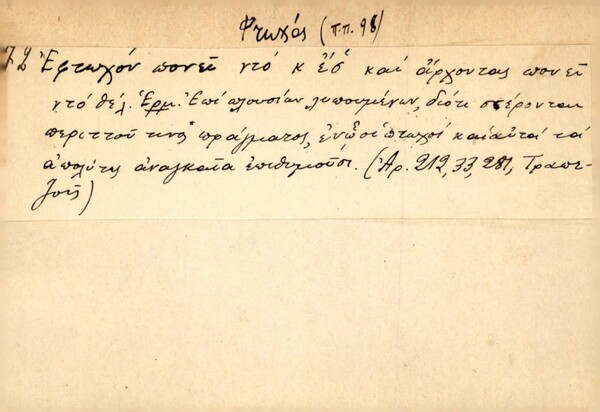 Φτωχός (π.π. 98)
72 Ἐφτωχόν πονεῖ ντό κ ἔσ̌ καί ἄρχοντας πονεῖ
ντό θέλ. Ἑρμ. Ἐπί πλουσίων λυπουμένων, διότι στέρονται
περιττοῦ τινος πράγματος, ἐνῷ οἱ πτωχοί καί αὐτά τά
ἀπολύτως ἀναγκαῖα ἐπιθυμοῦσι. (Ἀρ. 212, 33, 281, Τραπε-
ζοῦς)